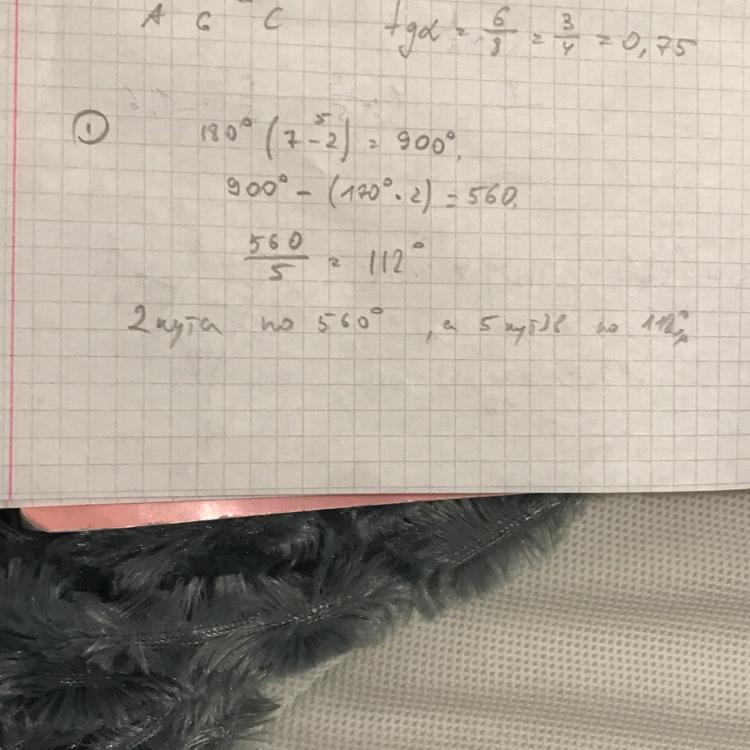 A G C tgα = 6/8 = 3/4 = 0,75
① 180° (7-2) = 900°,
5
900° - (170° · 2) = 560.
560/5 = 112°.
2 кута по 560°, а 5 кутів по 112°